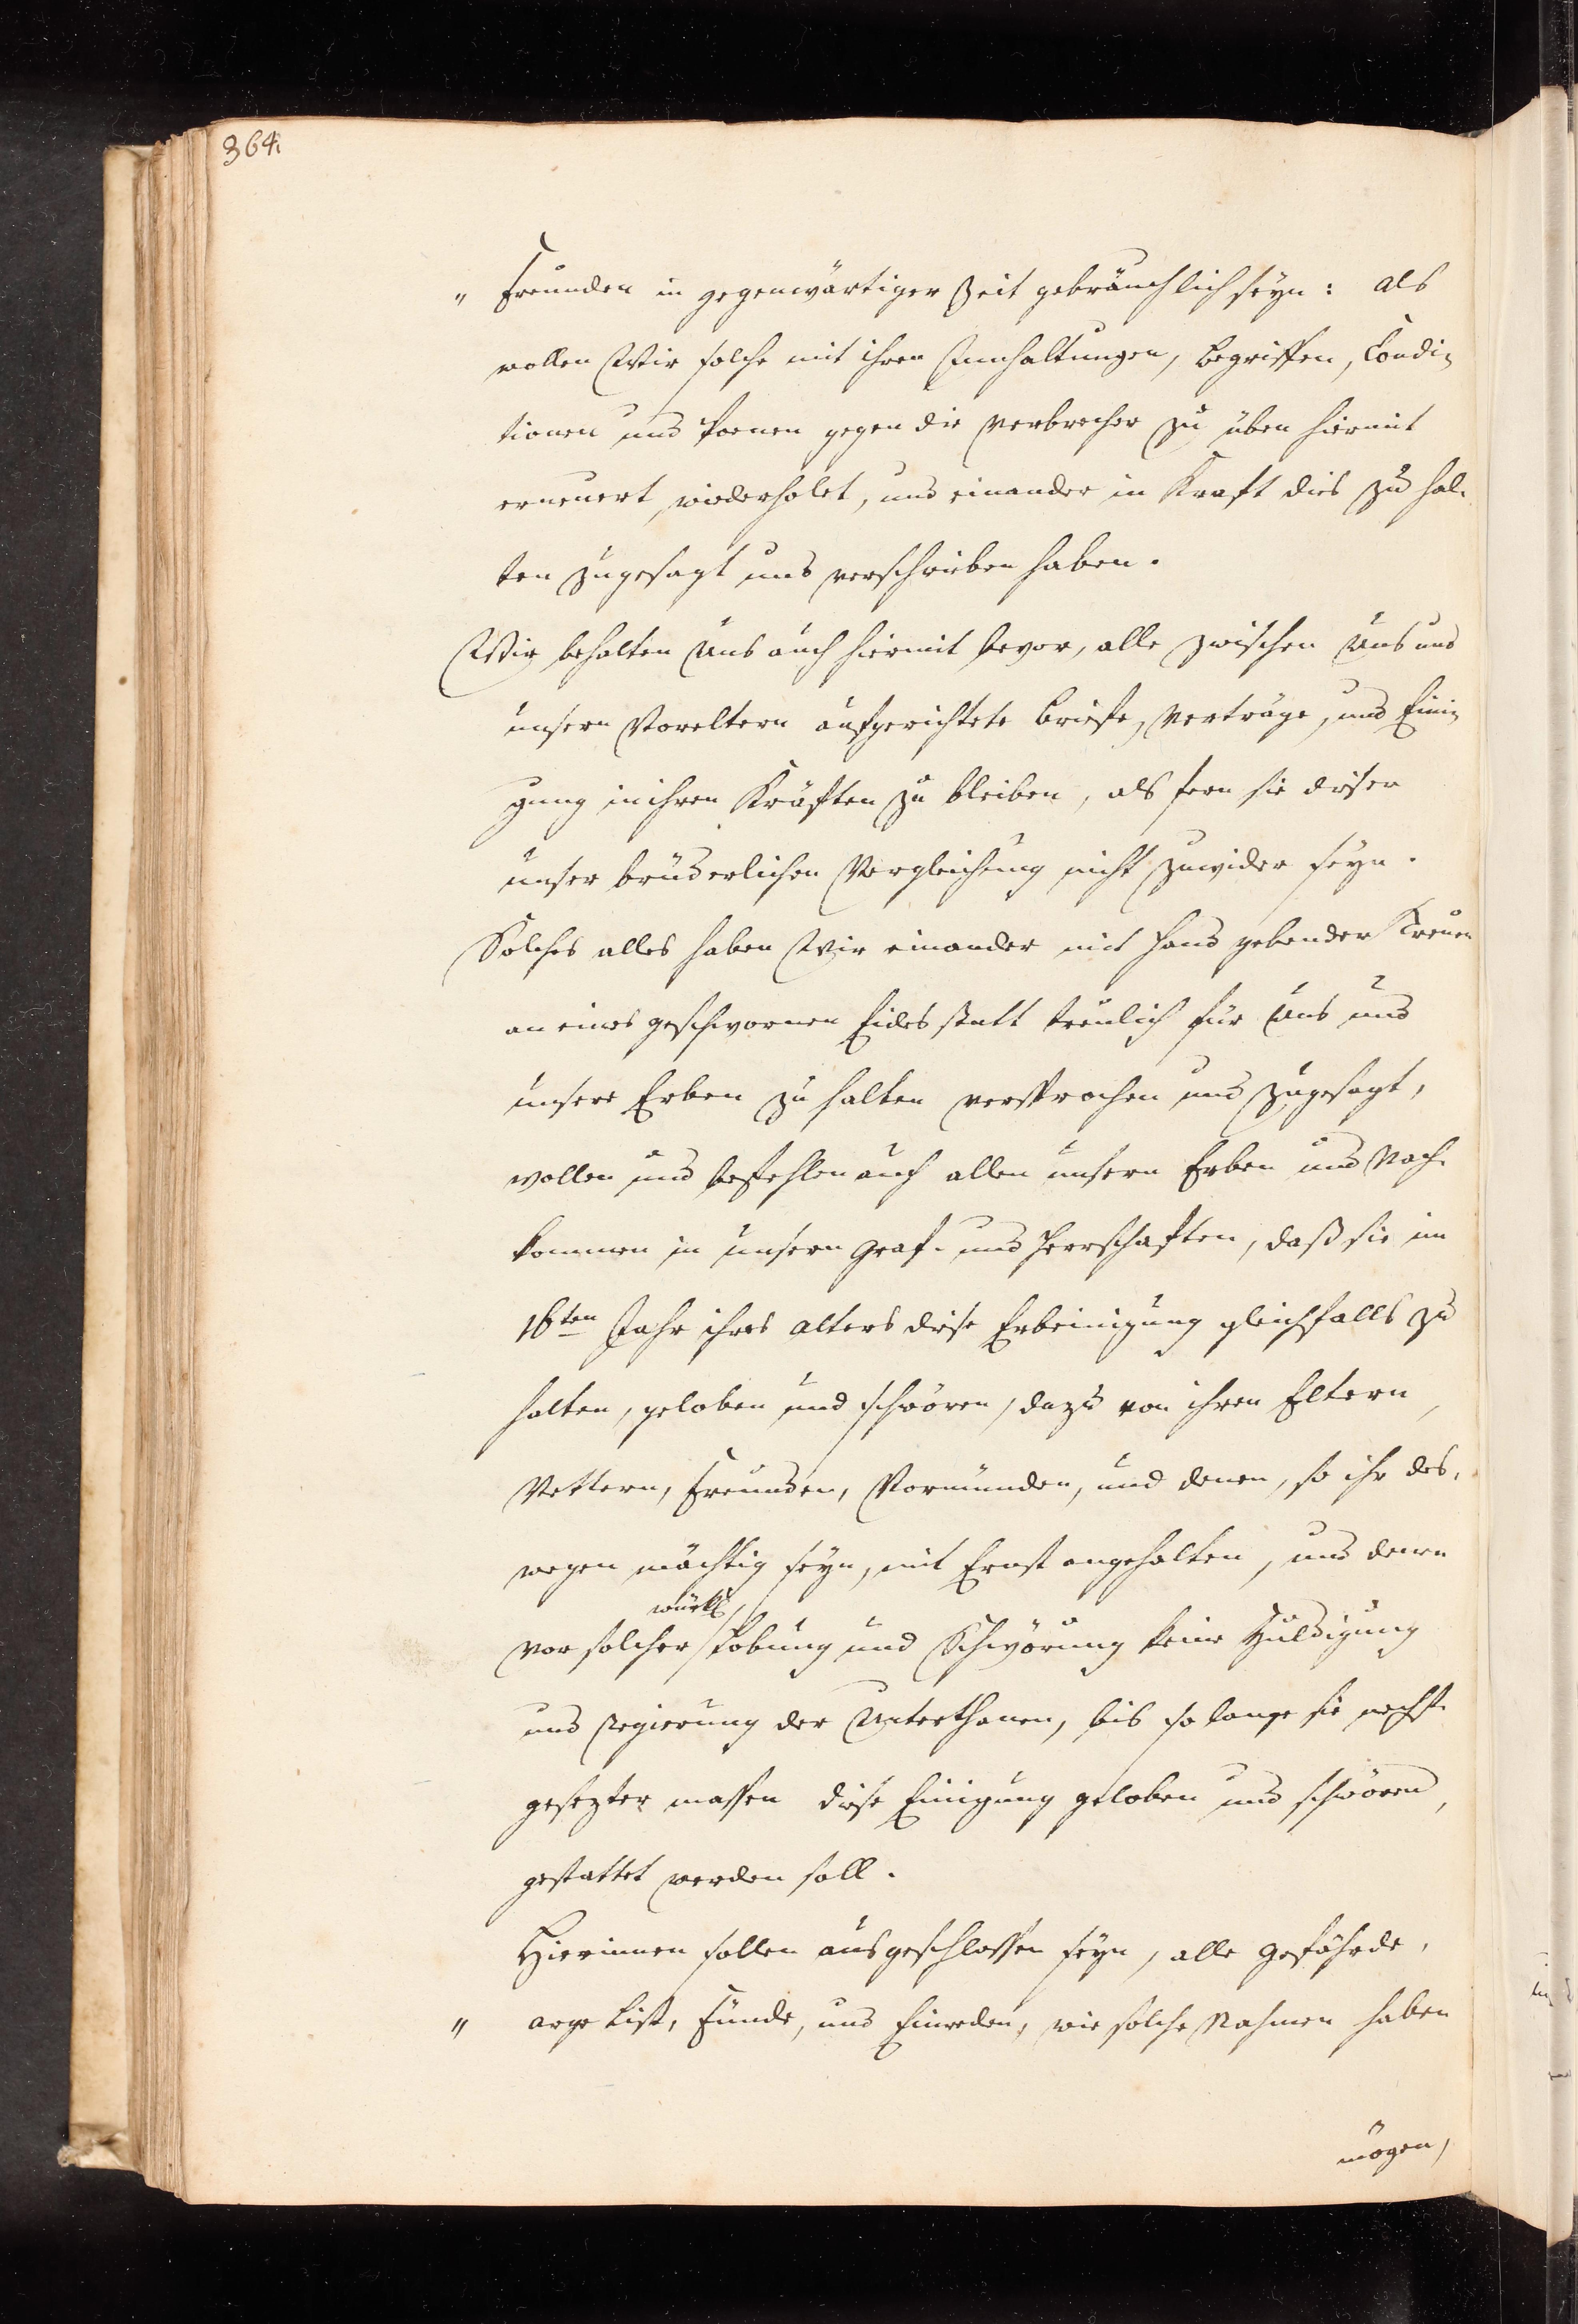 364.
" Freunden in gegenwärtiger Zeit gebräuchlich seyn: als
wollen Wir solche mit ihren Innhaltungen, begriffen, Condi-
tionen und Poenen gegen die Verbrecher zu üben hiermit
erneuert, wiederholet, und einander in Kraft dies zu hal-
ten zugesagt und verschrieben haben.
Wir behalten Uns auch hiermit bevor, alle zwischen Uns und
unsern Voreltern aufgerichtete Briefe, Verträge, und Eini-
gung in ihren Kräften zu bleiben, als fern sie dieser
unser brüderlichen Vergleichung nicht zuwider seyn.
Solches alles haben Wir einander mit Hand gebender Treuen
an eines geschwornen Eides statt treulich für Uns und
unsere Erben zu halten versprochen und zugesagt,
wollen und befehlen auch allen unsern Erben und Nach-
kommen in unsern Graf- und Herrschaften, daß sie im
16ten Jahr ihres Alters diese Erbeinigung gleichfalls zu
halten, geloben und schwören, dazu von ihren Eltern,
Vettern, Freunden, Vormünden, und denen, so ihr des-
wegen mächtig seyn, mit Ernst angehalten, und denen
würkl.
vor solcher Lobung und Schwörung keine Huldigung
und Regierung der Unterthanen, bis so lange sie
gesezter massen diese Einigung geloben und schwören,
gestattet werden soll.
Hierinnen sollen ausgeschlossen seyn, alle Gefährde,
" arge List, Fünde, und Einreden, wie solche Nahmen haben
mögen,